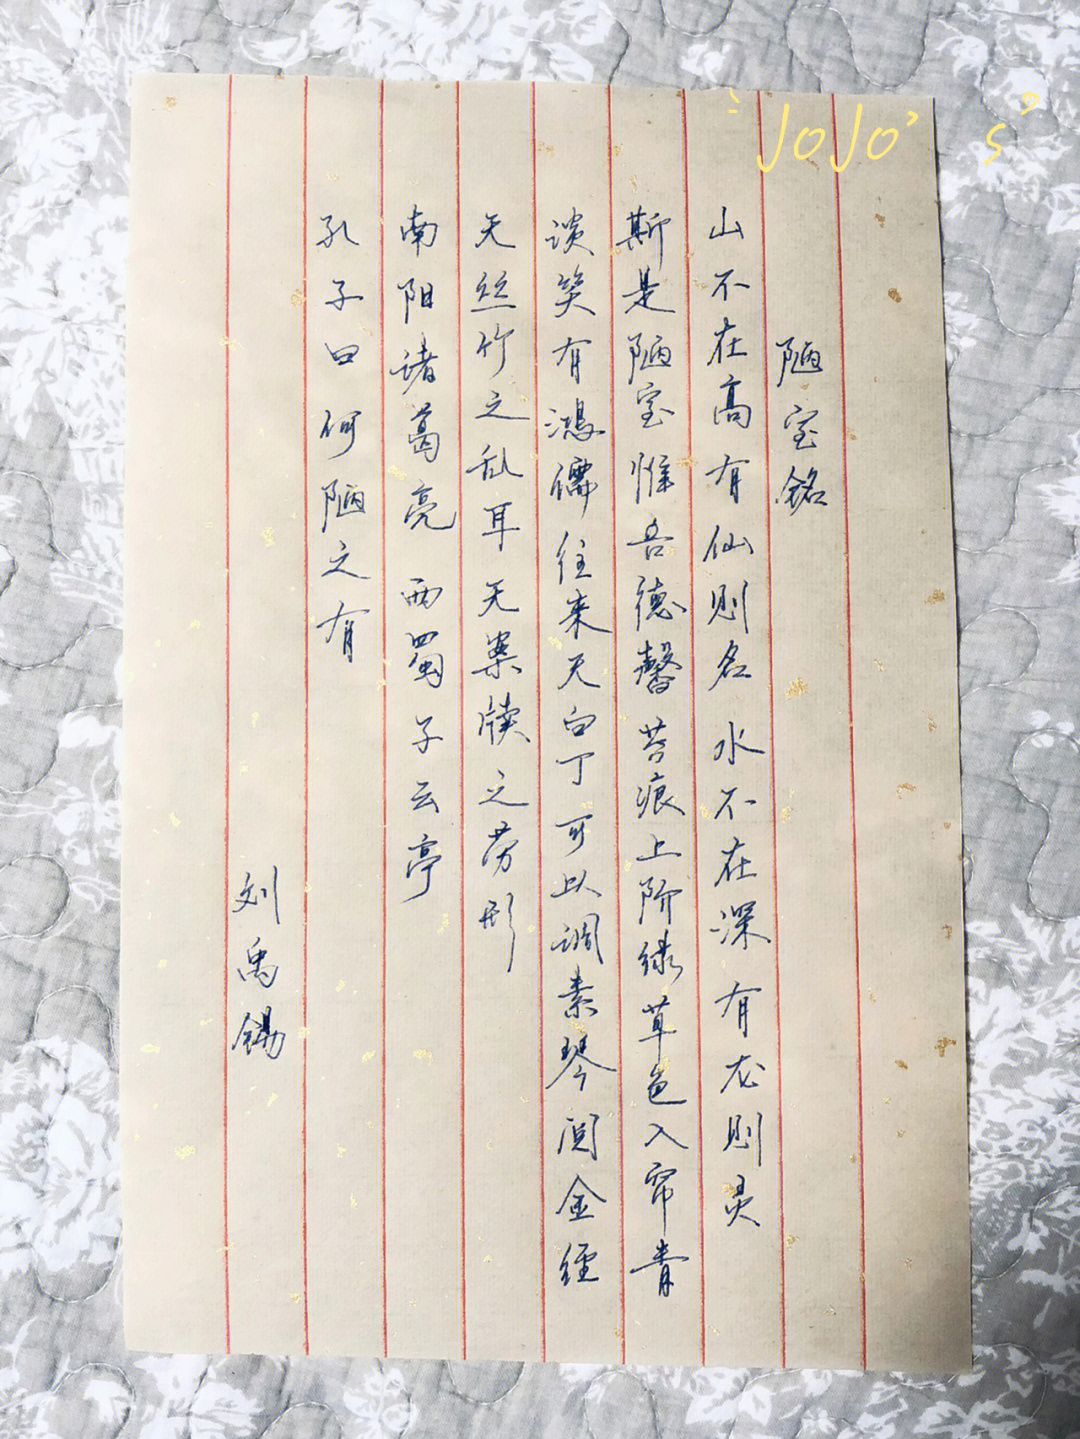 陋室铭
山不在高有仙则名水不在深有龙则灵
斯是陋室惟吾德馨苔痕上阶绿草色入帘青
谈笑有鸿儒往来无白丁可以调素琴阅金经
无丝竹之乱耳无案牍之劳形
南阳诸葛亮西蜀子云亭
孔子曰何陋之有
刘禹锡
JoJo's